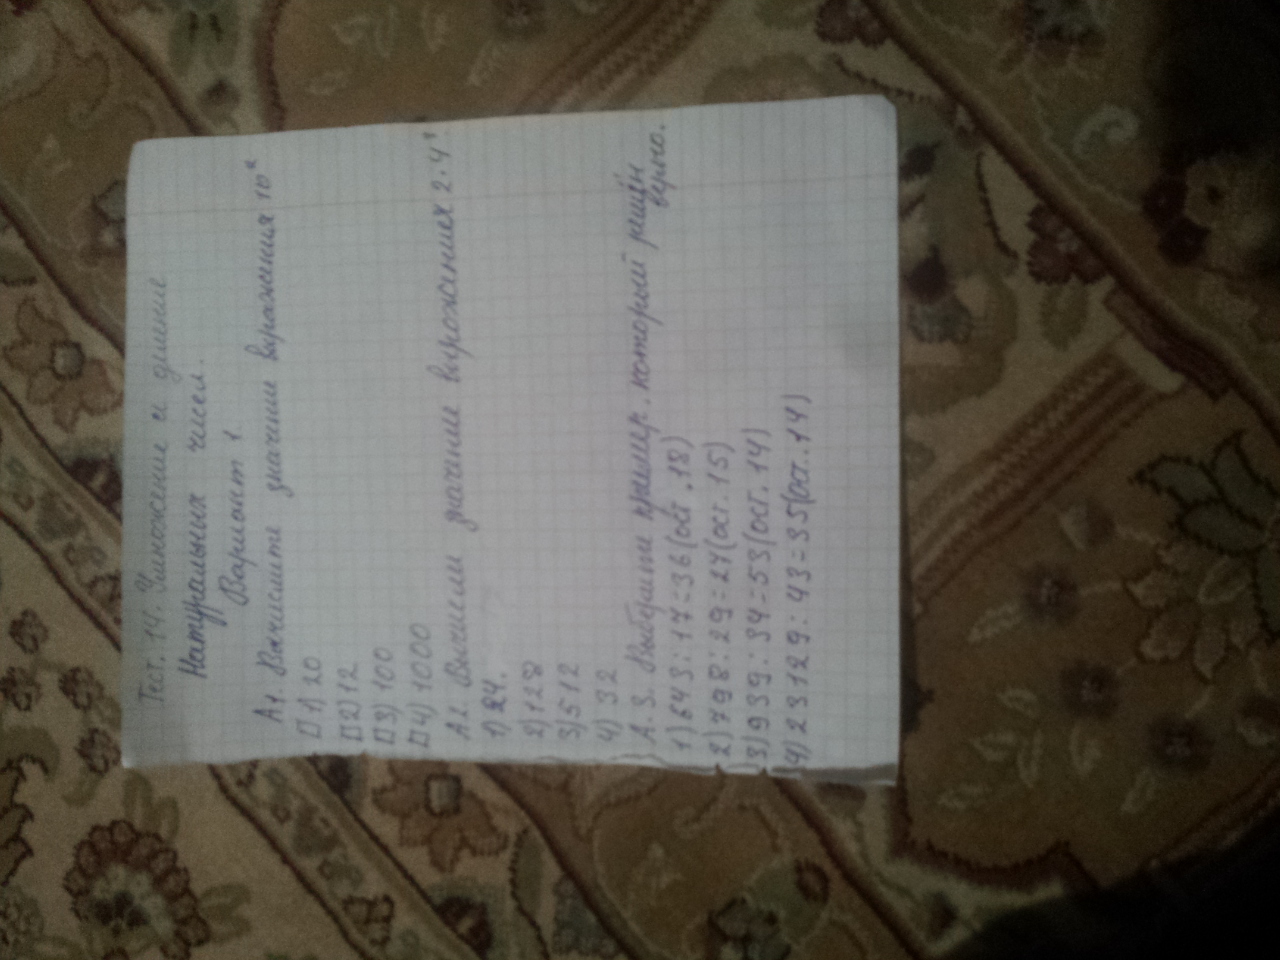 Тест. 14. Умножение и деление
Натуральных чисел.
Вариант 1.
А1. Вычислите значение выражения 10²
1) 20
2) 12
3) 100
4) 1000
А2. Вычислим значение выражениях 2·4³
1) 24.
2) 128
3) 512
4) 32
А. 3. Выберите пример, который решён
верно.
1) 643:17=36(ост.18)
2) 798:29=27(ост.15)
3) 939:34=53(ост.14)
4) 23129:43=35(ост.14)